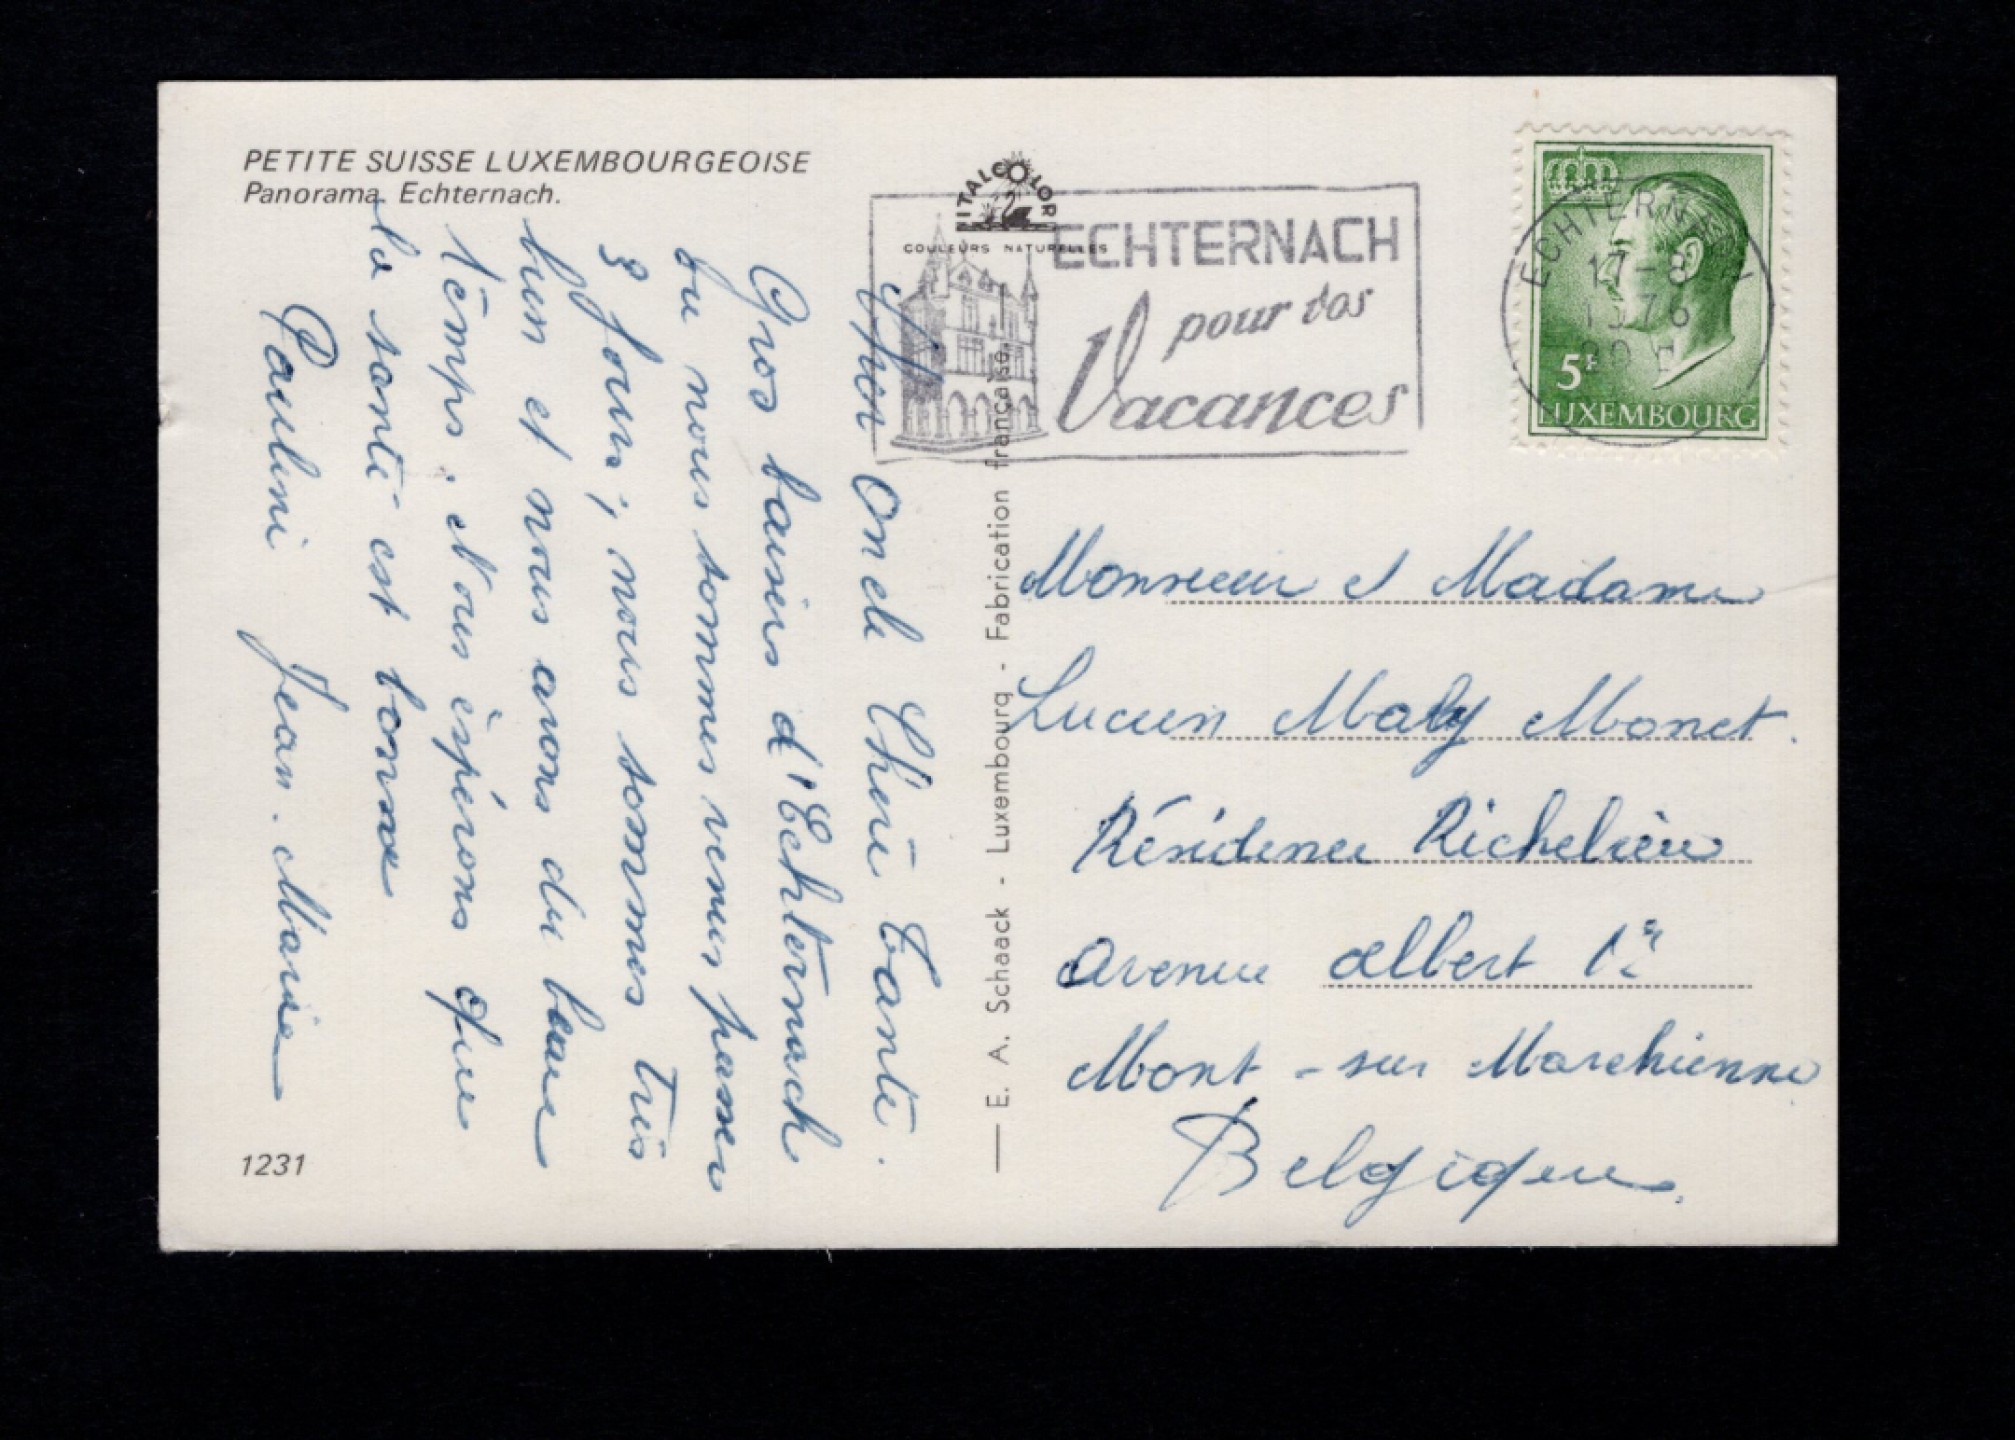 PETITE SUISSE LUXEMBOURGEOISE
Panorama Echternach.
ITALCOLOR
COULEURS NATURELLES
ECHTERNACH
pour vos
Vacances
ECHTERNACH
17-8
1976
20
5F
LUXEMBOURG
Mon Oncle Chère Tante.
Gros baisers d'Echternach
ou nous sommes venus passer
3 jours, nous sommes très
bien et nous avons du beau
temps, et ous èspérons que
la santé est bonne
Pauline Jean-Marie
E. A. Schaack - Luxembourg - Fabrication française.
Monsieur et Madame
Lucien Maly Monet.
Résidence Richelieu
Avenue Albert 1er
Mont-sur Marchienne
Belgique.
1231